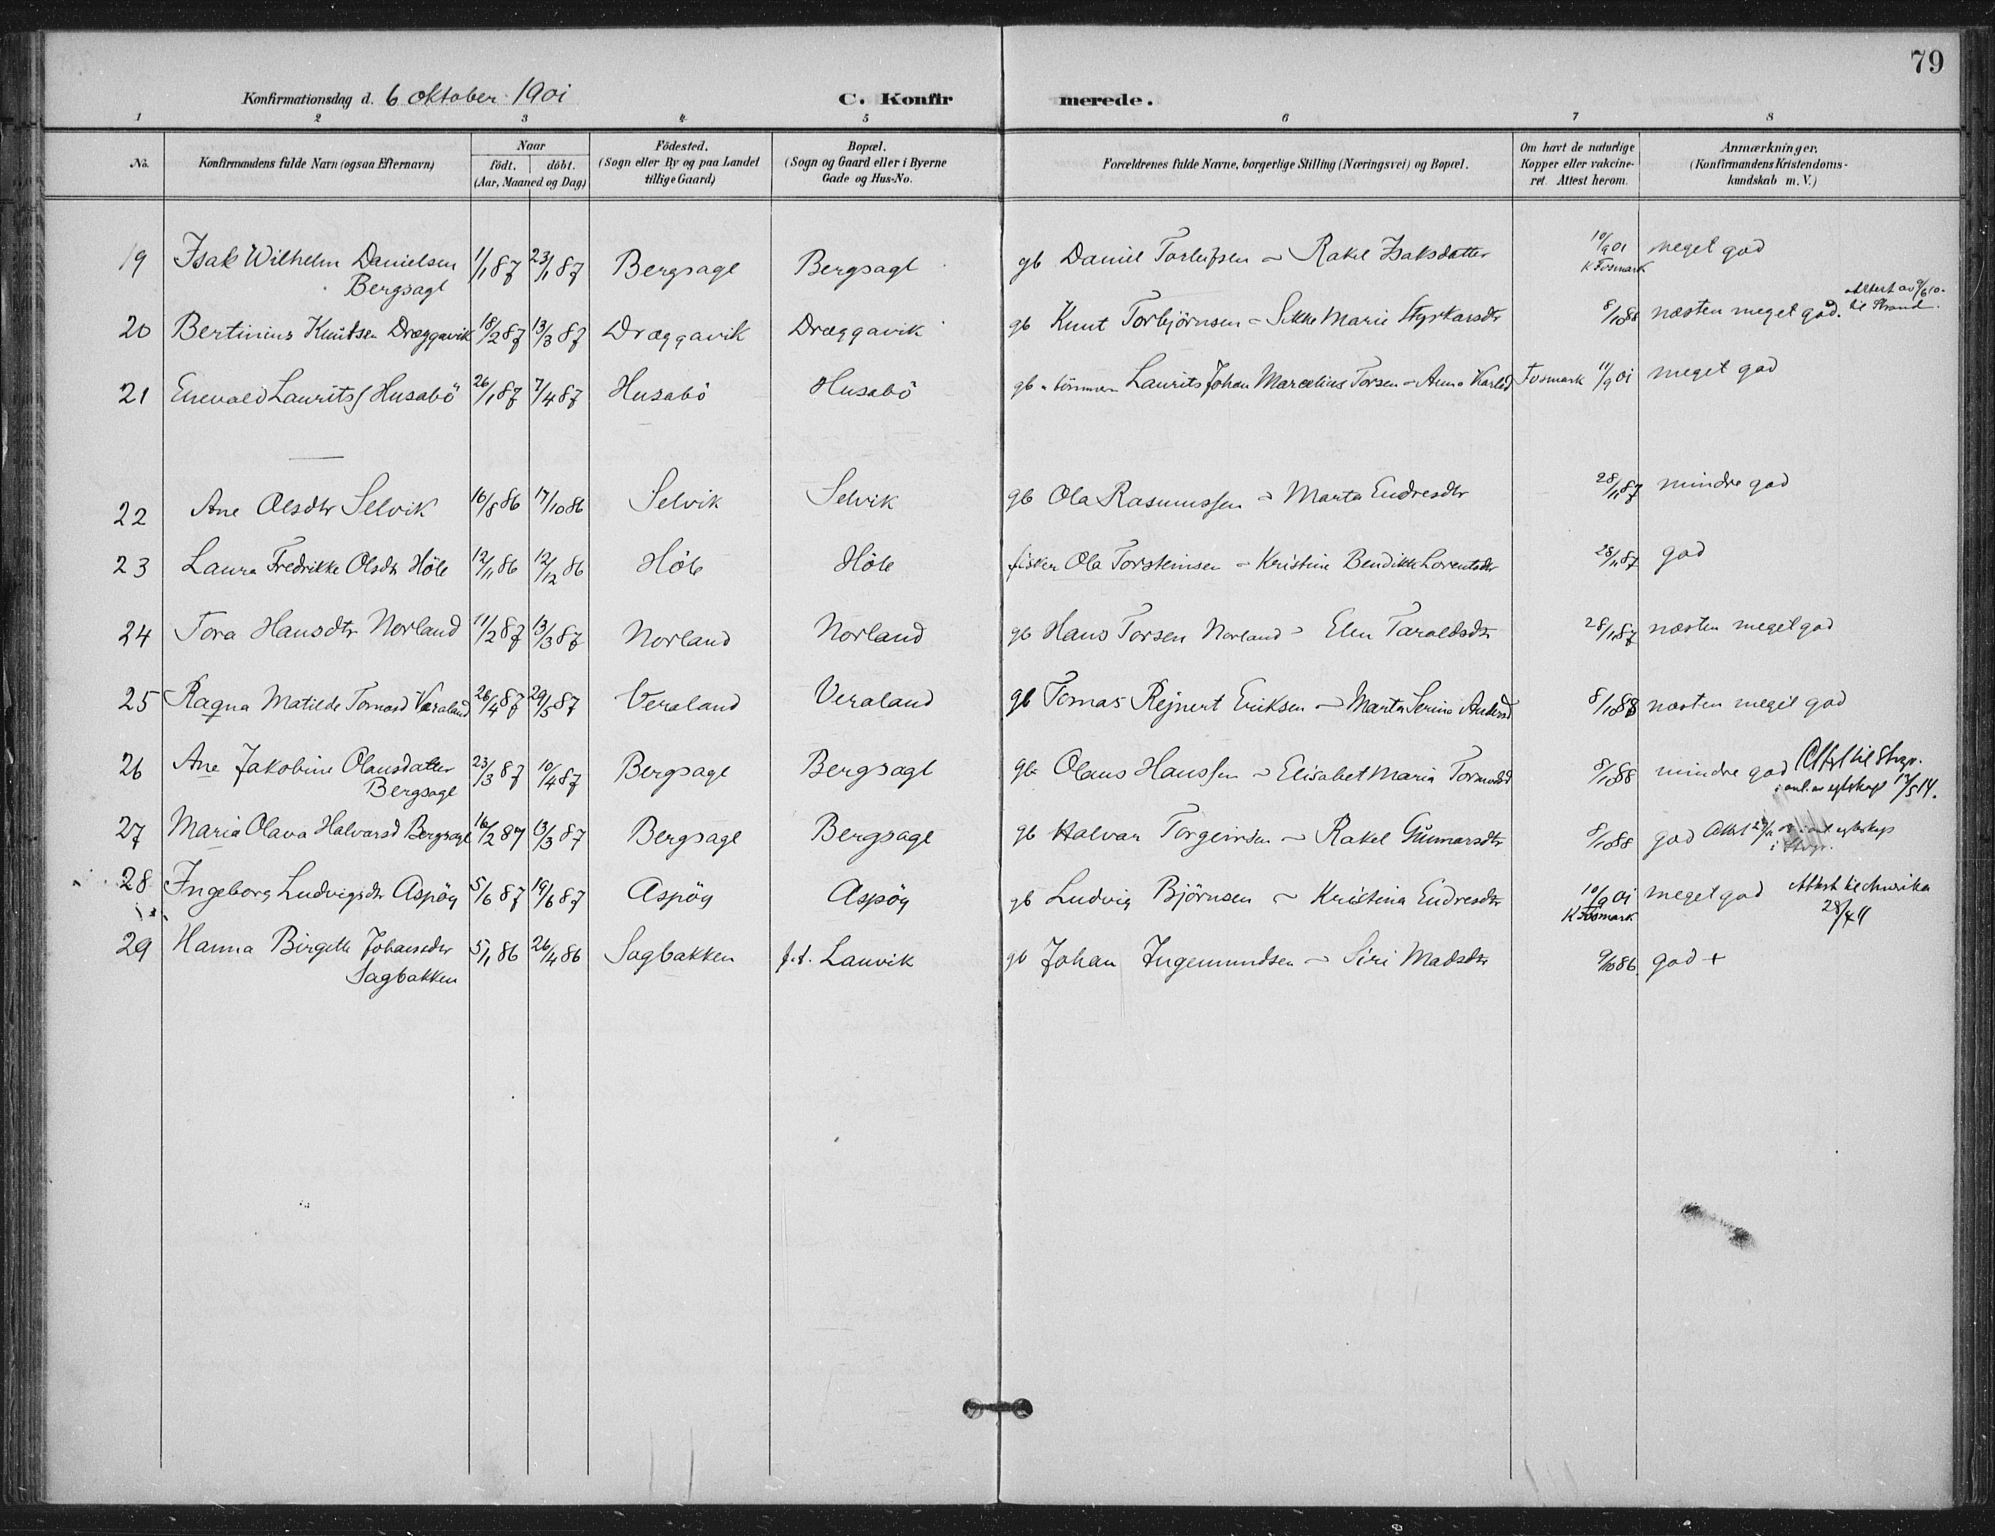 79
Konfirmationsdag d. 6 oktober 1901 C. Konfirmerede.
1 2 3 4 5 6 7 8
No. Konfirmandens fulde Navn (ogsaa Efternavn) Naar født. døbt. (Aar, Maaned og Dag) Födested. (Sogn eller By og paa Landet tillige Gaard) Bopæl. (Sogn og Gaard eller i Byerne Gade og Hus-No. Forældrenes fulde Navne, borgerlige Stilling (Næringsvei) og Bopæl. Om havt de naturlige Kopper eller vakcineret. Attest herom. Anmærkninger. (Konfirmandens Kristendomskundskab m. V.)
19 Isak Wilhelm Danielsen Bergsagl 1/1 87 23/1 87 Bergsagl Bergsagl gb Daniel Torleifsen - Rakel Isaksdatter 10/9 01 K Fosmark meget god
20 Bertinius Knutsen Dræggavik 18/2 87 13/3 87 Dræggavik Dræggavik gb Knut Torbjörnsen - Sikke Marie Styrkarsdtr 8/10 88 næsten meget god. Attest til Strand.
21 Enevald Laurits Husabö 26/1 87 7/4 87 Husabö Husabö gb Laurits Johan Marcelius Torsen - Anna Karlsd Fosmark 11/9 01 meget god
22 Ane Olsdtr Selvik 16/8 86 17/10 86 Selvik Selvik gb Ola Rasmussen - Marta Endresdtr 28/11 87 mindre god
23 Laura Fredrikke Olsdtr Höle 12/11 86 12/12 86 Höle Höle fisker Ola Torsteinsen - Kristine Bendikke Lorentsdtr 28/11 87 god
24 Tora Hansdtr Norland 11/2 87 13/3 87 Norland Norland gb Hans Torsen Norland - Elen Taraldsdtr 28/11 87 næsten meget god
25 Ragna Matilde Tomasd Veraland 26/4 87 29/5 87 Veraland Veraland gb Tomas Rejnert Eriksen - Marta Serine Andersd 8/10 88 næsten meget god
26 Ane Jakobine Olausdatter Bergsagl 23/3 87 10/4 87 Bergsagl Bergsagl gb Olaus Hanssen - Elisabet Maria Tormodsd 8/10 88 mindre god Attest til Stvgr. i anl. av egteskap 12/5 14.
27 Maria Olava Halvarsd Bergsagl 16/2 87 13/3 87 Bergsagl Bergsagl gb Halvar Torgeirsen - Rakel Gunnarsdtr 8/10 88 god Attest
28 Ingeborg Ludvigsdtr Aspöy 5/6 87 19/6 87 Aspöy Aspöy gb Ludvig Björnsen - Kristina Endresdtr 10/9 01 K Fosmark meget god Attest til Amerika 28/4 11
29 Hanna Birgitte Johansdtr Sagbakken 5/1 86 26/4 86 Sagbakken f.t. Lauvik gb Johan Ingemundsen - Siri Madsdtr 9/10 86. god +